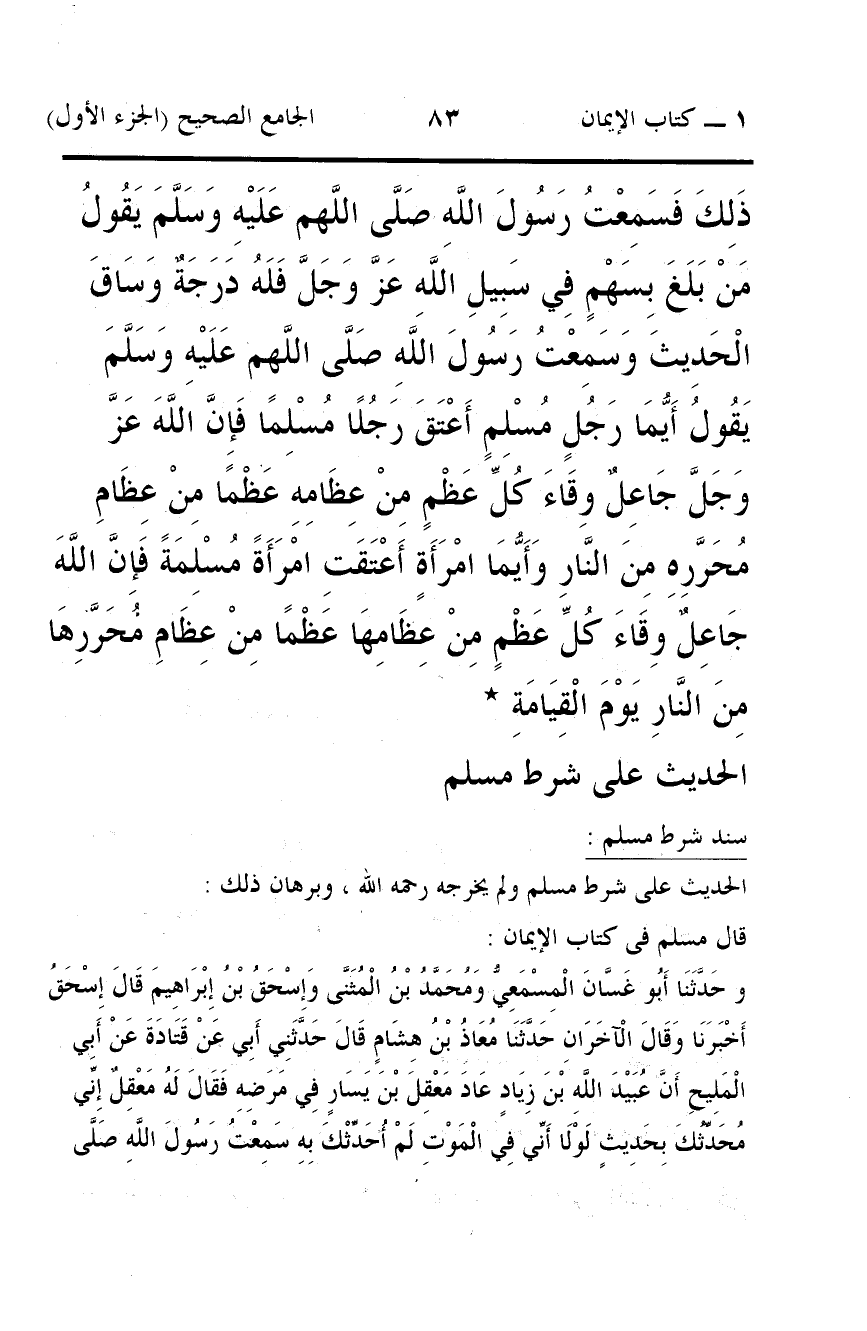 ١ ــ كتاب الإيمان ٨٣ الجامع الصحيح (الجزء الأول)
ذَلِكَ فَسَمِعْتُ رَسُولَ اللَّهِ صَلَّى اللَّهم عَلَيْهِ وَسَلَّمَ يَقُولُ
مَنْ بَلَغَ بِسَهْمٍ فِي سَبِيلِ اللَّهِ عَزَّ وَجَلَّ فَلَهُ دَرَجَةٌ وَسَاقَ
الْحَدِيثَ وَسَمِعْتُ رَسُولَ اللَّهِ صَلَّى اللَّهم عَلَيْهِ وَسَلَّمَ
يَقُولُ أَيُّمَا رَجُلٍ مُسْلِمٍ أَعْتَقَ رَجُلًا مُسْلِمًا فَإِنَّ اللَّهَ عَزَّ
وَجَلَّ جَاعِلٌ وِقَاءَ كُلِّ عَظْمٍ مِنْ عِظَامِهِ عَظْمًا مِنْ عِظَامِ
مُحَرَّرِهِ مِنَ النَّارِ وَأَيُّمَا امْرَأَةٍ أَعْتَقَتِ امْرَأَةً مُسْلِمَةً فَإِنَّ اللَّهَ
جَاعِلٌ وِقَاءَ كُلِّ عَظْمٍ مِنْ عِظَامِهَا عَظْمًا مِنْ عِظَامِ مُحَرَّرِهَا
مِنَ النَّارِ يَوْمَ الْقِيَامَةِ *
الحديث على شرط مسلم
سند شرط مسلم :
الحديث على شرط مسلم ولم يخرجه رحمه الله ، وبرهان ذلك :
قال مسلم فى كتاب الإيمان :
و حَدَّثَنَا أَبُو غَسَّانَ الْمِسْمَعِيُّ وَمُحَمَّدُ بْنُ الْمُثَنَّى وَإِسْحَقُ بْنُ إِبْرَاهِيمَ قَالَ إِسْحَقُ
أَخْبَرَنَا وَقَالَ الْآخَرَانِ حَدَّثَنَا مُعَاذُ بْنُ هِشَامٍ قَالَ حَدَّثَنِي أَبِي عَنْ قَتَادَةَ عَنْ أَبِي
الْمَلِيحِ أَنَّ عُبَيْدَ اللَّهِ بْنَ زِيَادٍ عَادَ مَعْقِلَ بْنَ يَسَارٍ فِي مَرَضِهِ فَقَالَ لَهُ مَعْقِلٌ إِنِّي
مُحَدِّثُكَ بِحَدِيثٍ لَوْلَا أَنِّي فِي الْمَوْتِ لَمْ أُحَدِّثْكَ بِهِ سَمِعْتُ رَسُولَ اللَّهِ صَلَّى